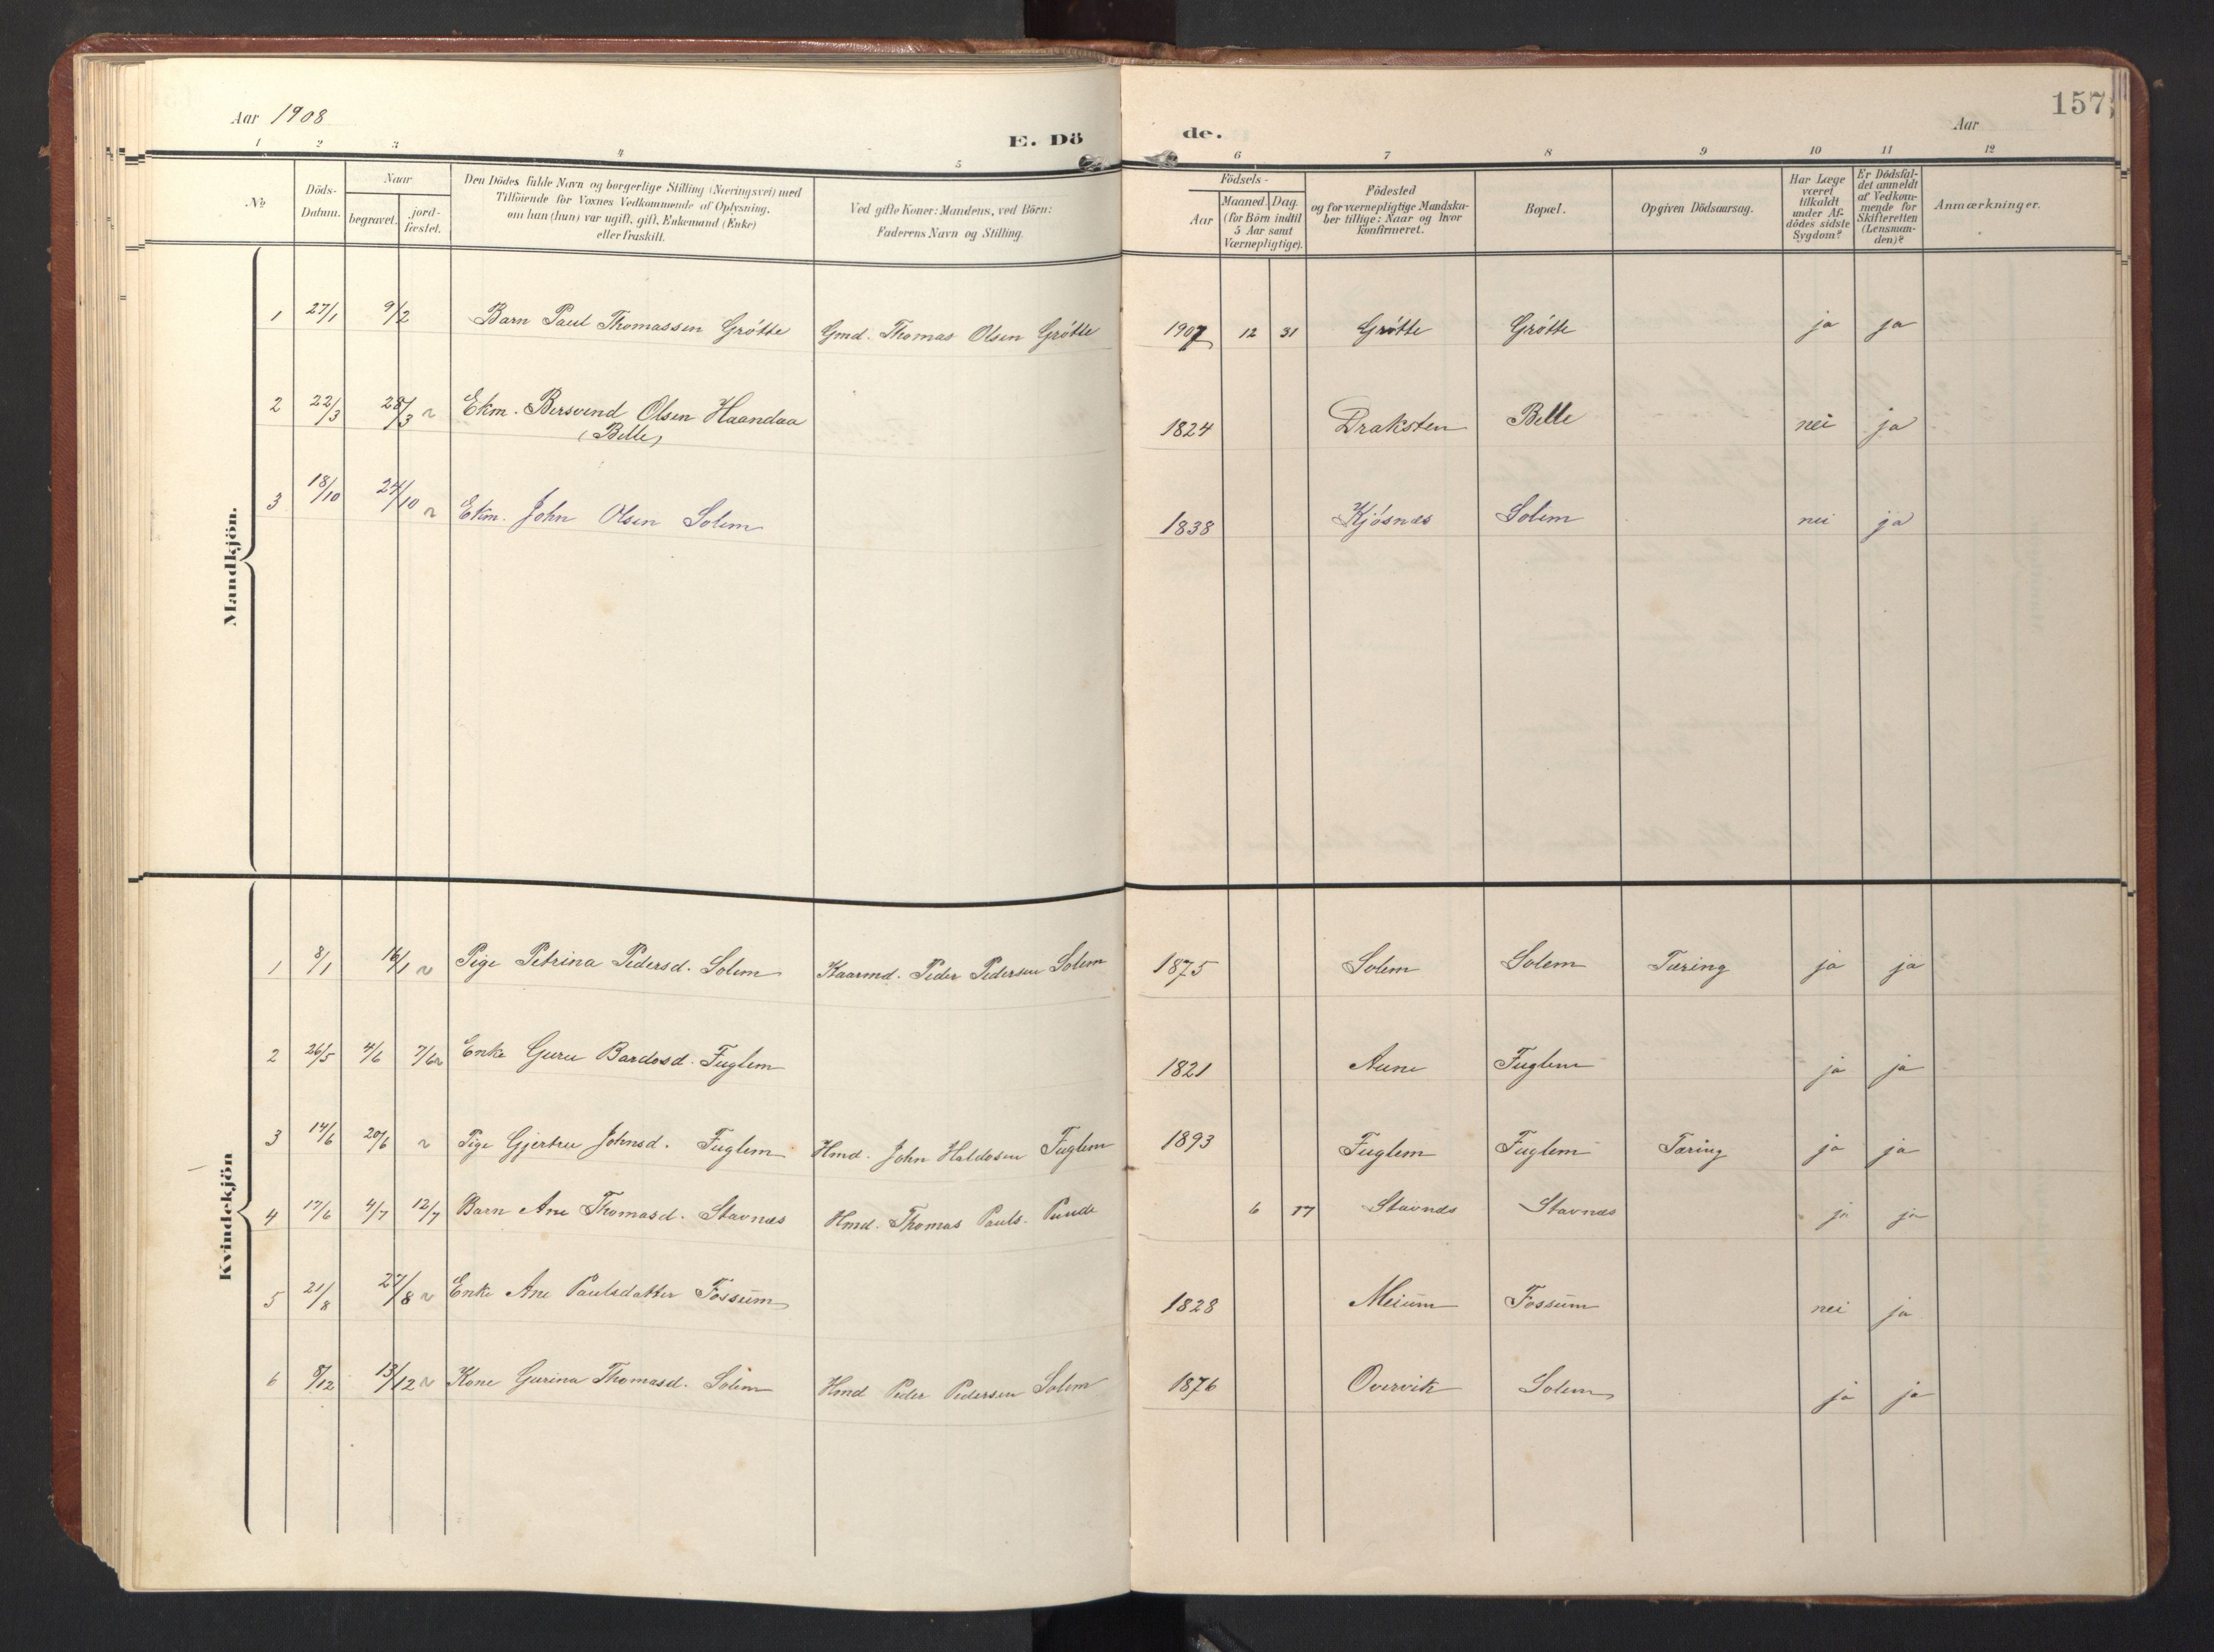 Aar 1908
E. Dö
de.
Aar
157
1 2 3 4 5 6 7 8 9 10 11 12
No
Döds-
Datum.
Naar
begravet.
jord-
fæstet.
Den Dödes fulde Navn og borgerlige Stilling (Næringsvei) med
Tilföiende for Voxnes Vedkommende af Oplysning,
om han (hun) var ugift, gift, Enkemand (Enke)
eller fraskilt.
Ved gifte Koner: Mandens, ved Börn:
Faderens Navn og Stilling.
Födsels-
Aar
Maaned. Dag.
(for Börn indtil
5 Aar samt
Værnepligtige).
Födested
og for værnepligtige Mandska-
ber tillige: Naar og hvor
konfirmeret.
Bopæl.
Opgiven Dödsaarsag.
Har Læge
været
tilkaldt
under Af-
dödes sidste
Sygdom?
Er Dödsfal-
det anmeldt
af Vedkom-
mende for
Skifteretten
(Lensman-
den)?
Anmærkninger.
Mandkjön.
1 27/1 9/2 Barn Paul Thomassen Grøtte Gmd. Thomas Olsen Grøtte 1907 12 31 Grøtte Grøtte ja ja
2 22/3 28/3 Ekm. Bersvend Olsen Haandaa 1824 Draksten Belle nei ja
(Belle)
3 18/10 24/10 Ekm. John Olsen Solem 1838 Kjøsnæs Solem nei ja
Kvindekjön
1 8/1 16/1 Pige Petrina Pedersd. Solem Kaarmd. Peder Pedersen Solem 1875 Solem Solem Tæring ja ja
2 26/5 4/6 7/6 Enke Guru Bardosd. Fuglem 1821 Aune Fuglem ja ja
3 14/6 20/6 Pige Gjertru Johnsd. Fuglem Hmd. John Haldosen Fuglem 1893 Fuglem Fuglem Tæring ja ja
4 17/6 4/7 12/7 Barn Ane Thomasd. Stavnæs Hmd. Thomas Pauls. 6 17 Stavnæs Stavnæs ja ja
5 21/8 27/8 Enke Ane Paulsdatter Fossum 1828 Meium Fossum nei ja
6 8/12 13/12 Kone Gurina Thomasd. Solem Hmd Peder Pedersen Solem 1876 Overvik Solem ja ja